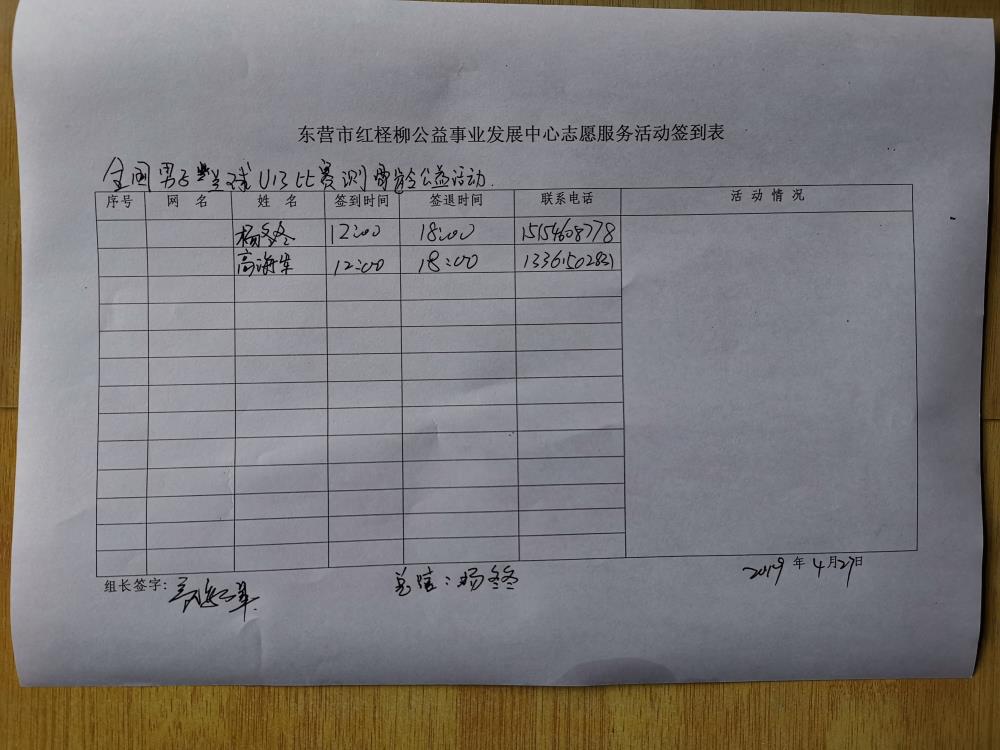 东营市红柽柳公益事业发展中心志愿服务活动签到表
全国男子篮球U13比赛测骨龄公益活动.
序号 网名 姓名 签到时间 签退时间 联系电话 活动情况
杨冬冬 12:00 18:00 15154608778
高海军 12:00 18:00
组长签字: 总结:杨冬冬 2019年4月27日